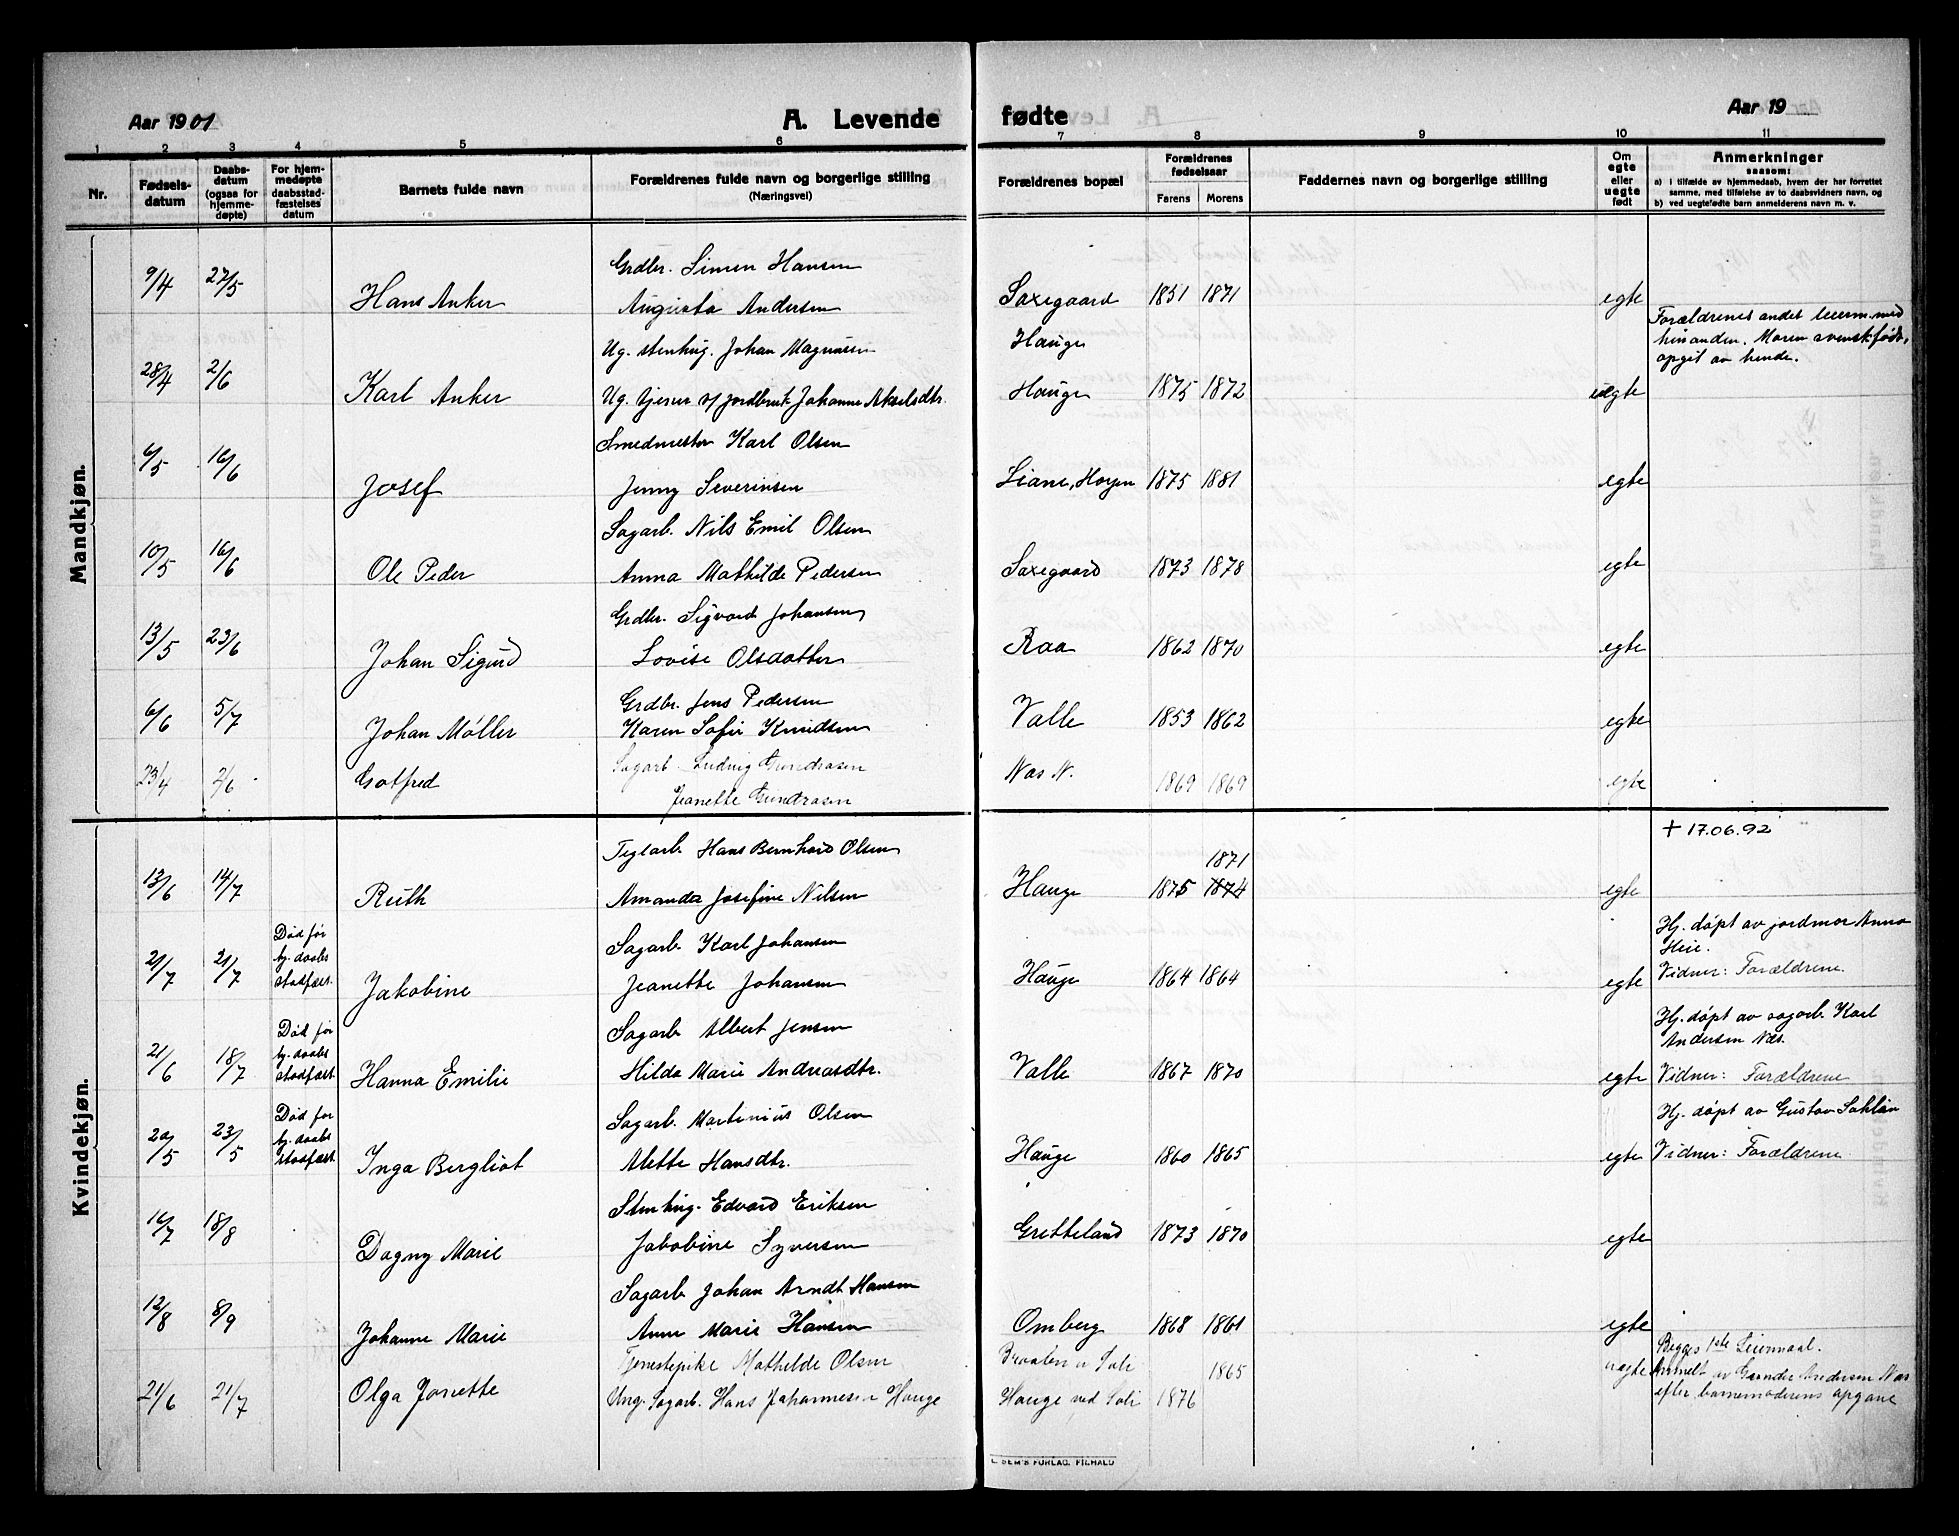 Aar 1901
A. Levende
fødte
Aar 19
1 2 3 4 5 6 7 8 9 10 11
Nr.
Fødsels-
datum
Daabs-
datum
(ogsaa for
hjemme-
døpte)
For hjem-
medøpte
daabsstad-
fæstelses
datum
Barnets fulde navn
Forældrenes fulde navn og borgerlige stilling
(Næringsvei)
Forældrenes bopæl
Forældrenes
fødselsaar
Farens Morens
Faddernes navn og borgerlige stilling
Om
egte
eller
uegte
født
Anmerkninger
saasom:
a) i tilfælde av hjemmedaab, hvem der har forrettet
samme, med tilføielse av to daabsvidners navn, og
b) ved uegtefødte barn anmelderens navn m. v.
Mandkjøn.
Grdbr. Simen Hansen
9/4 27/5 Hans Anker Augusta Andersen Saxegaard 1851 1871 egte
Ug. stenhug. Johan Magnusen Hauge
Forældrenes andet leierm. med
hinanden. Moren svenskfødt,
opgit av hende.
28/4 2/6 Karl Anker Ug. tjener v/ jordbruk Johanne Akselsdtr. Hauge 1875 1872 uegte
Smedmester Karl Olsen
6/5 16/6 Josef Jenny Severinsen Liane, Horgen 1875 1881 egte
Sagarb. Nils Emil Olsen
10/5 16/6 Ole Peder Anna Mathilde Pedersen Saxegaard 1873 1878 egte
Grdbr. Sigvard Johansen
13/5 23/6 Johan Sigurd Lovise Olsdatter Raa 1862 1870 egte
Grdbr. Jens Pedersen
6/6 5/7 Johan Møller Karen Sofie Knudsen Valle 1853 1862 egte
23/4 2/6 Gotfred Sagarb. Ludvig Gundrosen Næs N. 1869 1869 egte
Jeanette Gundrosen
Kvindekjøn.
+ 17.06.92
Teglarb. Hans Bernhard Olsen
1871
13/6 14/7 Ruth Amanda Josefine Nilsen Hauge 1875 1874 egte
Død før
hj. daabs
stadfæst.
Sagarb. Karl Johansen
Hj. døpt av jordmor Anna
Heie.
21/7 21/7 Jakobine Jeanette Johansen Hauge 1864 1864 egte Vidner: Forældrene.
Død før
hj. daabs
stadfæst.
Sagarb. Albert Jensen
Hj. døpt av sagarb. Karl
Andersen Næs.
21/6 18/7 Hanna Emilie Hilda Marie Andreasdtr. Valle 1867 1870 egte Vidner: Forældrene
Død før
hj. daabs
stadfæst.
Sagarb. Martinius Olsen
Hj. døpt av Gustav
20/5 23/5 Inga Bergliot Alette Hansdtr. Hauge 1860 1865 egte Vidner: Forældrene
Stenhug. Edvard Eriksen
16/7 18/8 Dagny Marie Jakobine Syversen Gretteland 1873 1870 egte
Sagarb. Johan Arndt Hansen
12/8 8/9 Johanne Marie Anne Marie Hansen Omberg 1868 1861 egte
Tjenestepike Mathilde Olsen Braaten u Soli 1865 uegte
21/6 21/7 Olga Janette Ung. Sagarb. Hans Johannesen Hauge Hauge ved Soli 1876
Begges 1ste Leiermaal.
Anmelt av Andersen Næs
efter barnemoderens opgave
E. SEM'S FORLAG, F.HALD